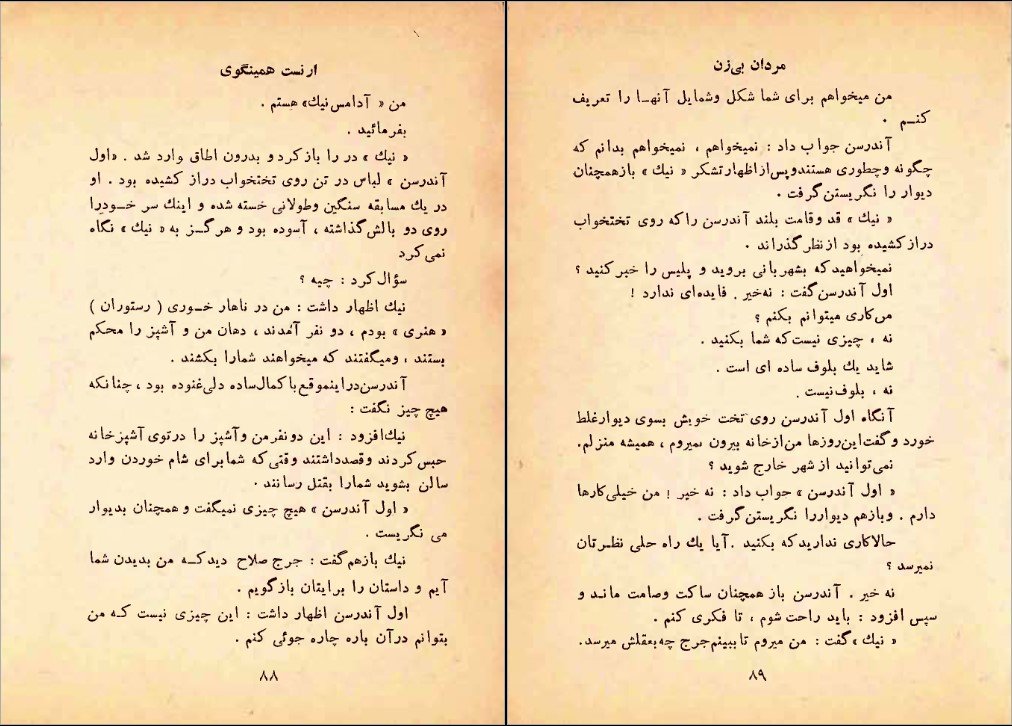 ارنست همینگوی
من « آدامس نیك» هستم .
بفرمائید .
« نیك » در را باز کرد و بدرون اطاق وارد شد . «اول
آندرسن » لباس در تن روی تختخواب دراز کشیده بود . او
در یك مسابقه سنگین وطولانی خسته شده و اینك سر خـودرا
روی دو بالش گذاشته ، آسوده بود و هرگـز به « نیك » نگاه
نمی کرد
سؤال کرد : چیه ؟
نیك اظهار داشت : من در ناهار خـوری ( رستوران )
« هنری » بودم ، دو نفر آمدند ، دهان من و آشپز را محکم
بستند ، ومیگفتند که میخواهند شمارا بکشند .
آندرسن دراینموقع با کمال ساده دلی غنوده بود ، چنانکه
هیچ چیز نگفت :
نیك افزود : این دو نفر من وآشپز را درتوی آشپزخانه
حبس کردند وقصدداشتند وقتی که شما برای شام خوردن وارد
سالن بشوید شمارا بقتل رسانند .
« اول آندرسن » هیچ چیزی نمیگفت و همچنان بدیوار
می نگریست .
نیك بازهم گفت : جرج صلاح دید کـه من بدیدن شما
آیم و داستان را برایتان بازگویم .
اول آندرسن اظهار داشت : این چیزی نیست کـه من
بتوانم درآن باره چاره جوئی کنم .
۸۸
مردان بی زن
من میخواهم برای شما شکل وشمایل آنهـا را تعریف
کنـم .
آندرسن جواب داد : نمیخواهم ، نمیخواهم بدانم که
چگونه وچطوری هستندوپس ازاظهارتشکر « نیك » بازهمچنان
دیوار را نگریستن گرفت .
« نیك » قد وقامت بلند آندرسن راکه روی تختخواب
درازکشیده بود ازنظرگذراند .
نمیخواهیدکه بشهربانی بروید و پلیس را خبر کنید ؟
اول آندرسن گفت : نه خیر . فایده ای ندارد !
من کاری میتوانم بکنم ؟
نه ، چیزی نیست که شما بکنید .
شاید یك بلوف ساده ای است .
نه ، بلوف نیست .
آنگاه اول آندرسن روی تخت خویش بسوی دیوارغلط
خورد وگفت این روزها من ازخانه بیرون نمیروم ، همیشه منزلم.
نمی توانید از شهر خارج شوید ؟
« اول آندرسن » جواب داد : نه خیر ! من خیلی کارها
دارم . وبازهم دیواررا نگریستن گرفت .
حالاکاری نداریدکه بکنید . آیا یك راه حلی نظرتان
نمیرسد ؟
نه خیر . آندرسن باز همچنان ساکت وصامت مانـد و
سپس افزود : باید راحت شوم ، تا فکری کنم .
« نیك » گفت : من میروم تاببینم جرج چه بعقلش میرسد.
۸۹